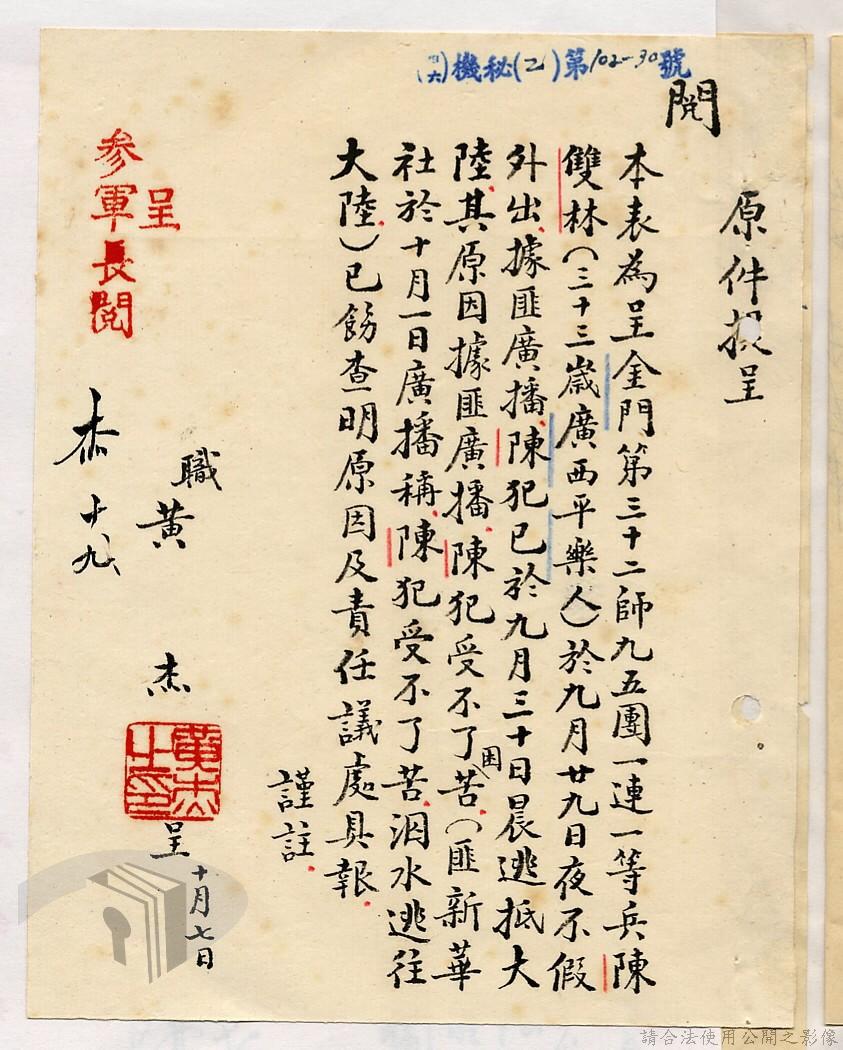 (四六)機秘(乙)第102-30號
閱
原件擬呈
本表為呈金門第三十二師九五團一連一等兵陳
雙林(三十三歲廣西平樂人)於九月廿九日夜不假
外出、據匪廣播、陳犯已於九月三十日晨逃抵大
陸、其原因據匪廣播、陳犯受不了困苦、(匪新華
社於十月一日廣播稱、陳犯受不了苦、泅水逃往
大陸、)已飭查明原因及責任議處具報。
謹註。
職
黃
杰
黃杰之印
呈
十月七日
呈
參軍長閱
杰